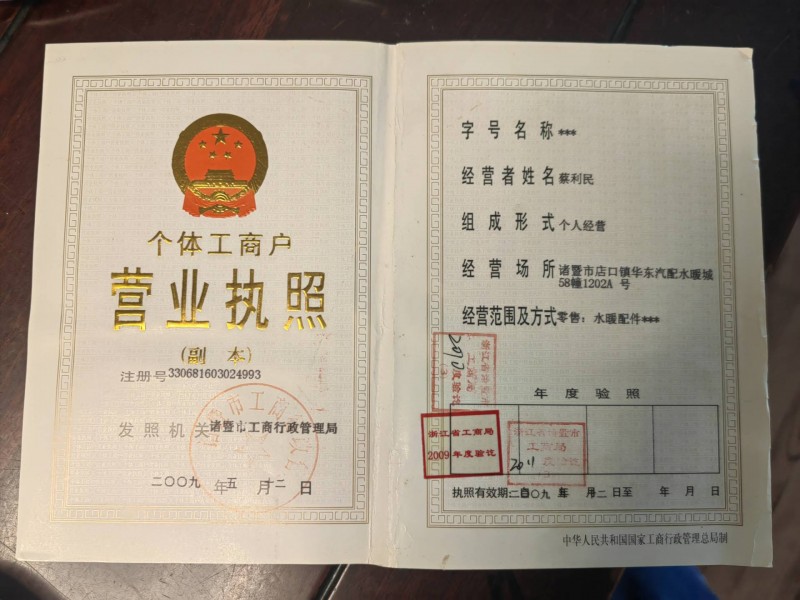 个体工商户
营业执照
(副 本)
注册号330681603024993
发照机关诸暨市工商行政管理局
二〇〇九 年 五 月 十二 日
字号名称***
经营者姓名蔡利民
组成形式 个人经营
经营场所 诸暨市店口镇华东汽配水暖城
58幢1202A 号
经营范围及方式零售：水暖配件***
2010
年度验照
浙江省工商局
2009 年度验讫
工商局
2011
执照有效期二〇〇九 年 月 二 日至 年 月 日
中华人民共和国国家工商行政管理总局制